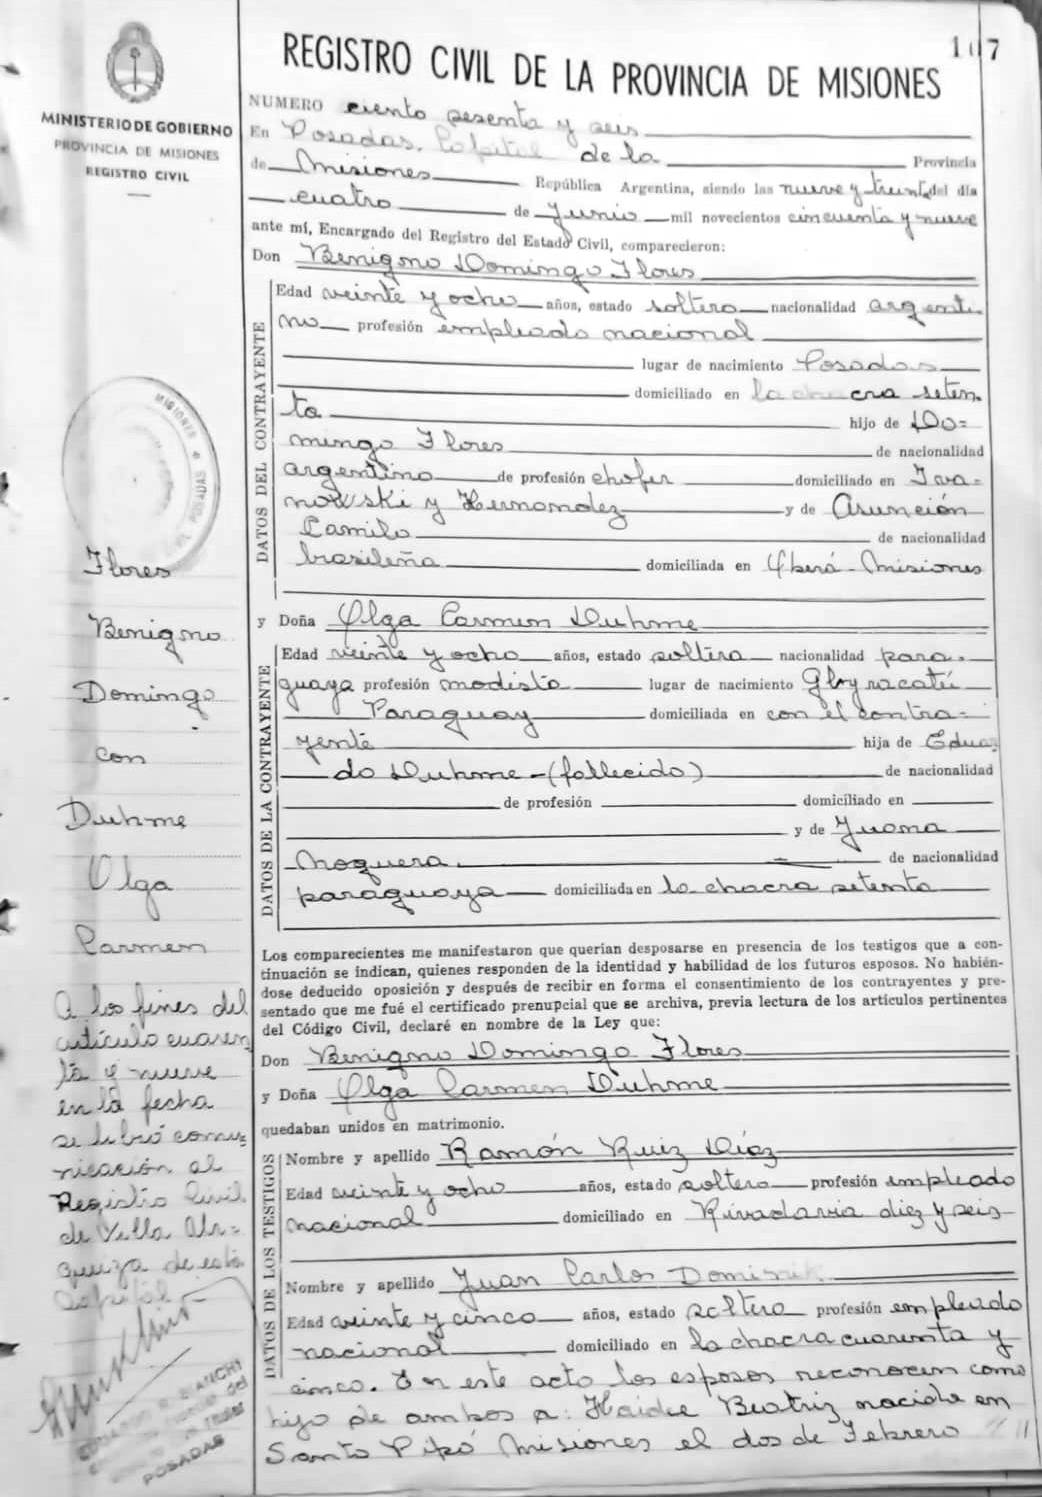 107
REGISTRO CIVIL DE LA PROVINCIA DE MISIONES
MINISTERIO DE GOBIERNO
PROVINCIA DE MISIONES
REGISTRO CIVIL
NUMERO ciento sesenta y seis
En Posadas, Capital de la Provincia
de Misiones República Argentina, siendo las nueve y trein. del día
cuatro de Junio mil novecientos cincuenta y nueve
ante mí, Encargado del Registro del Estado Civil, comparecieron:
Don Benigno Domingo Flores
DATOS DEL CONTRAYENTE
Edad veinte y ocho años, estado soltero nacionalidad argenti-
no profesión empleado nacional
lugar de nacimiento Posadas
domiciliado en la chacra seten-
ta hijo de Do=
mingo Flores de nacionalidad
argentino de profesión chofer domiciliado en Iva=
nowski y Hernandez y de Asunción
Camilo de nacionalidad
brasileña domiciliada en Yberá - Misiones
y Doña Olga Carmen Duhme
DATOS DE LA CONTRAYENTE
Edad veinte y ocho años, estado soltera nacionalidad para=
guaya profesión modista lugar de nacimiento
Paraguay domiciliada en con el contra=
yente hija de Eduar
do Duhme - (fallecido) de nacionalidad
de profesión domiciliado en
y de Juana
Noguera de nacionalidad
paraguaya domiciliada en la chacra setenta
Los comparecientes me manifestaron que querían desposarse en presencia de los testigos que a con-
tinuación se indican, quienes responden de la identidad y habilidad de los futuros esposos. No habién-
dose deducido oposición y después de recibir en forma el consentimiento de los contrayentes y pre-
sentado que me fué el certificado prenupcial que se archiva, previa lectura de los artículos pertinentes
del Código Civil, declaré en nombre de la Ley que:
Don Benigno Domingo Flores
y Doña Olga Carmen Duhme
quedaban unidos en matrimonio.
DATOS DE LOS TESTIGOS
Nombre y apellido Ramón Ruiz Díaz
Edad veinte y ocho años, estado soltero profesión empleado
nacional domiciliado en Rivadavia diez y seis
Nombre y apellido Juan Carlos
Edad veinte y cinco años, estado soltero profesión empleado
nacional domiciliado en la chacra cuarenta y
cinco. En este acto los esposos reconocen como
hijo de ambos a: Haidee Beatriz nacida en
Santo Pipó Misiones el dos de Febrero
MISIONES
POSADAS
Flores
Benigno
Domingo
con
Duhme
Olga
Carmen
A los fines del
artículo cuaren
ta y nueve
en la fecha
se libró comu=
nicación al
Registro Civil
de Villa Ur=
quiza de esta
Capital
BIANCHI
del
Titular
POSADAS